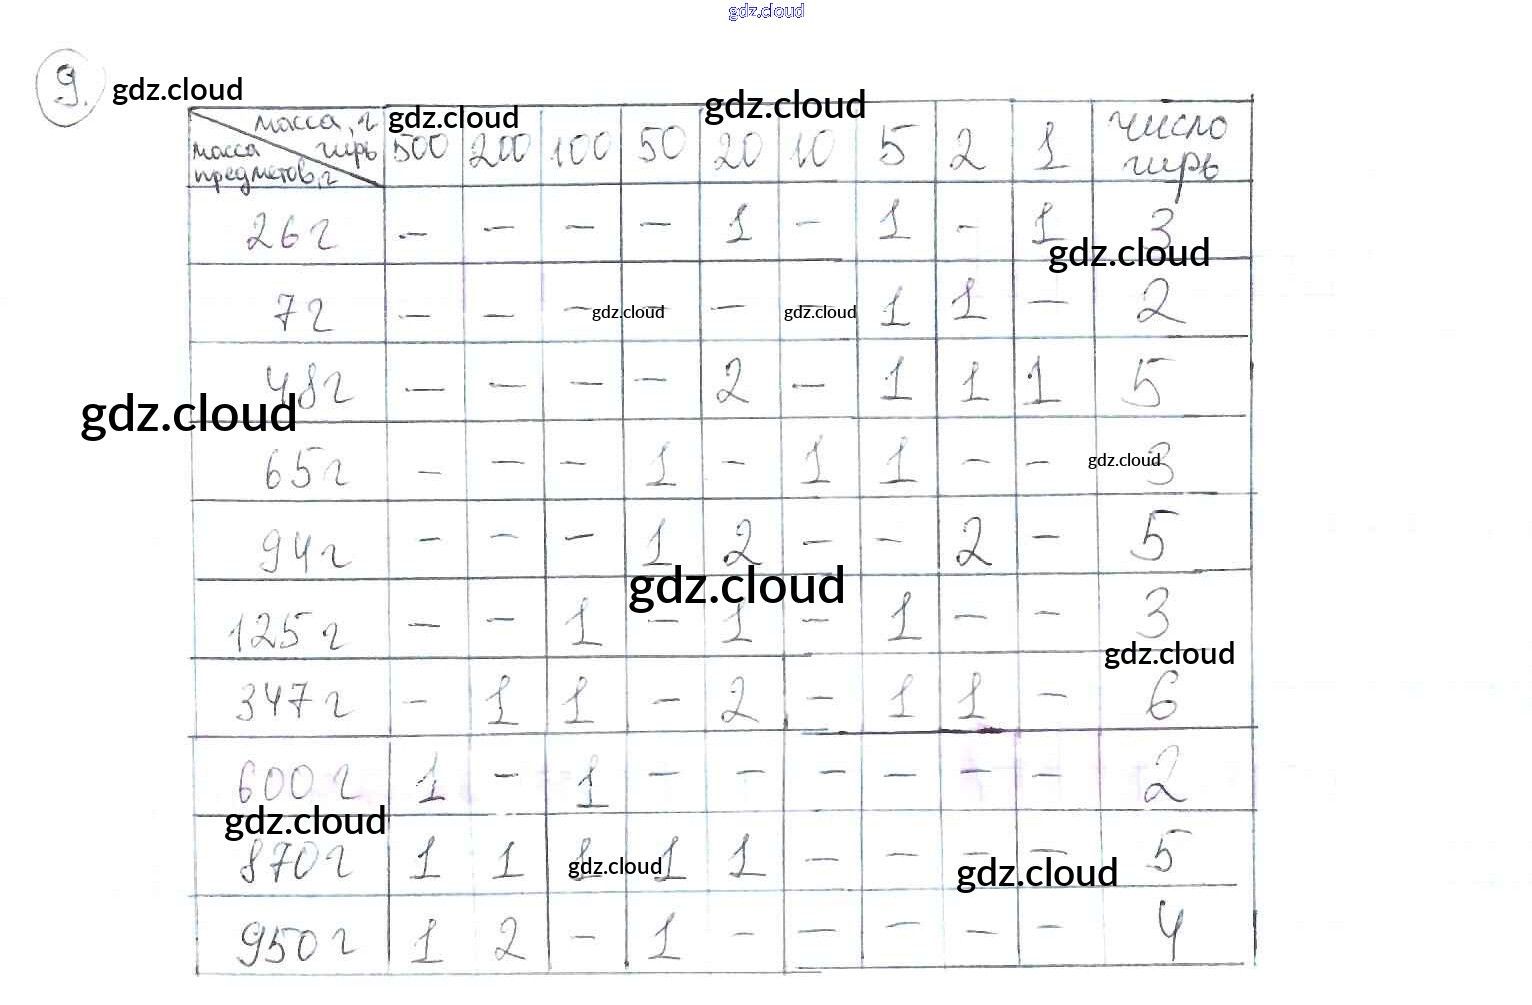 gdz.cloud
9. gdz.cloud
масса, г гирь масса предметов, г 500 200 100 50 20 10 5 2 1 число гирь
gdz.cloud gdz.cloud
26 г - - - - 1 - 1 - 1 3
gdz.cloud
7 г - - - - - - 1 1 - 2
gdz.cloud gdz.cloud
48 г - - - - 2 - 1 1 1 5
gdz.cloud
65 г - - - 1 - 1 1 - - 3
gdz.cloud
94 г - - - 1 2 - - 2 - 5
gdz.cloud
125 г - - 1 - 1 - 1 - - 3
gdz.cloud
347 г - 1 1 - 2 - 1 1 - 6
600 г 1 - 1 - - - - - - 2
gdz.cloud
870 г 1 1 1 1 1 - - - - 5
gdz.cloud gdz.cloud
950 г 1 2 - 1 - - - - - 4